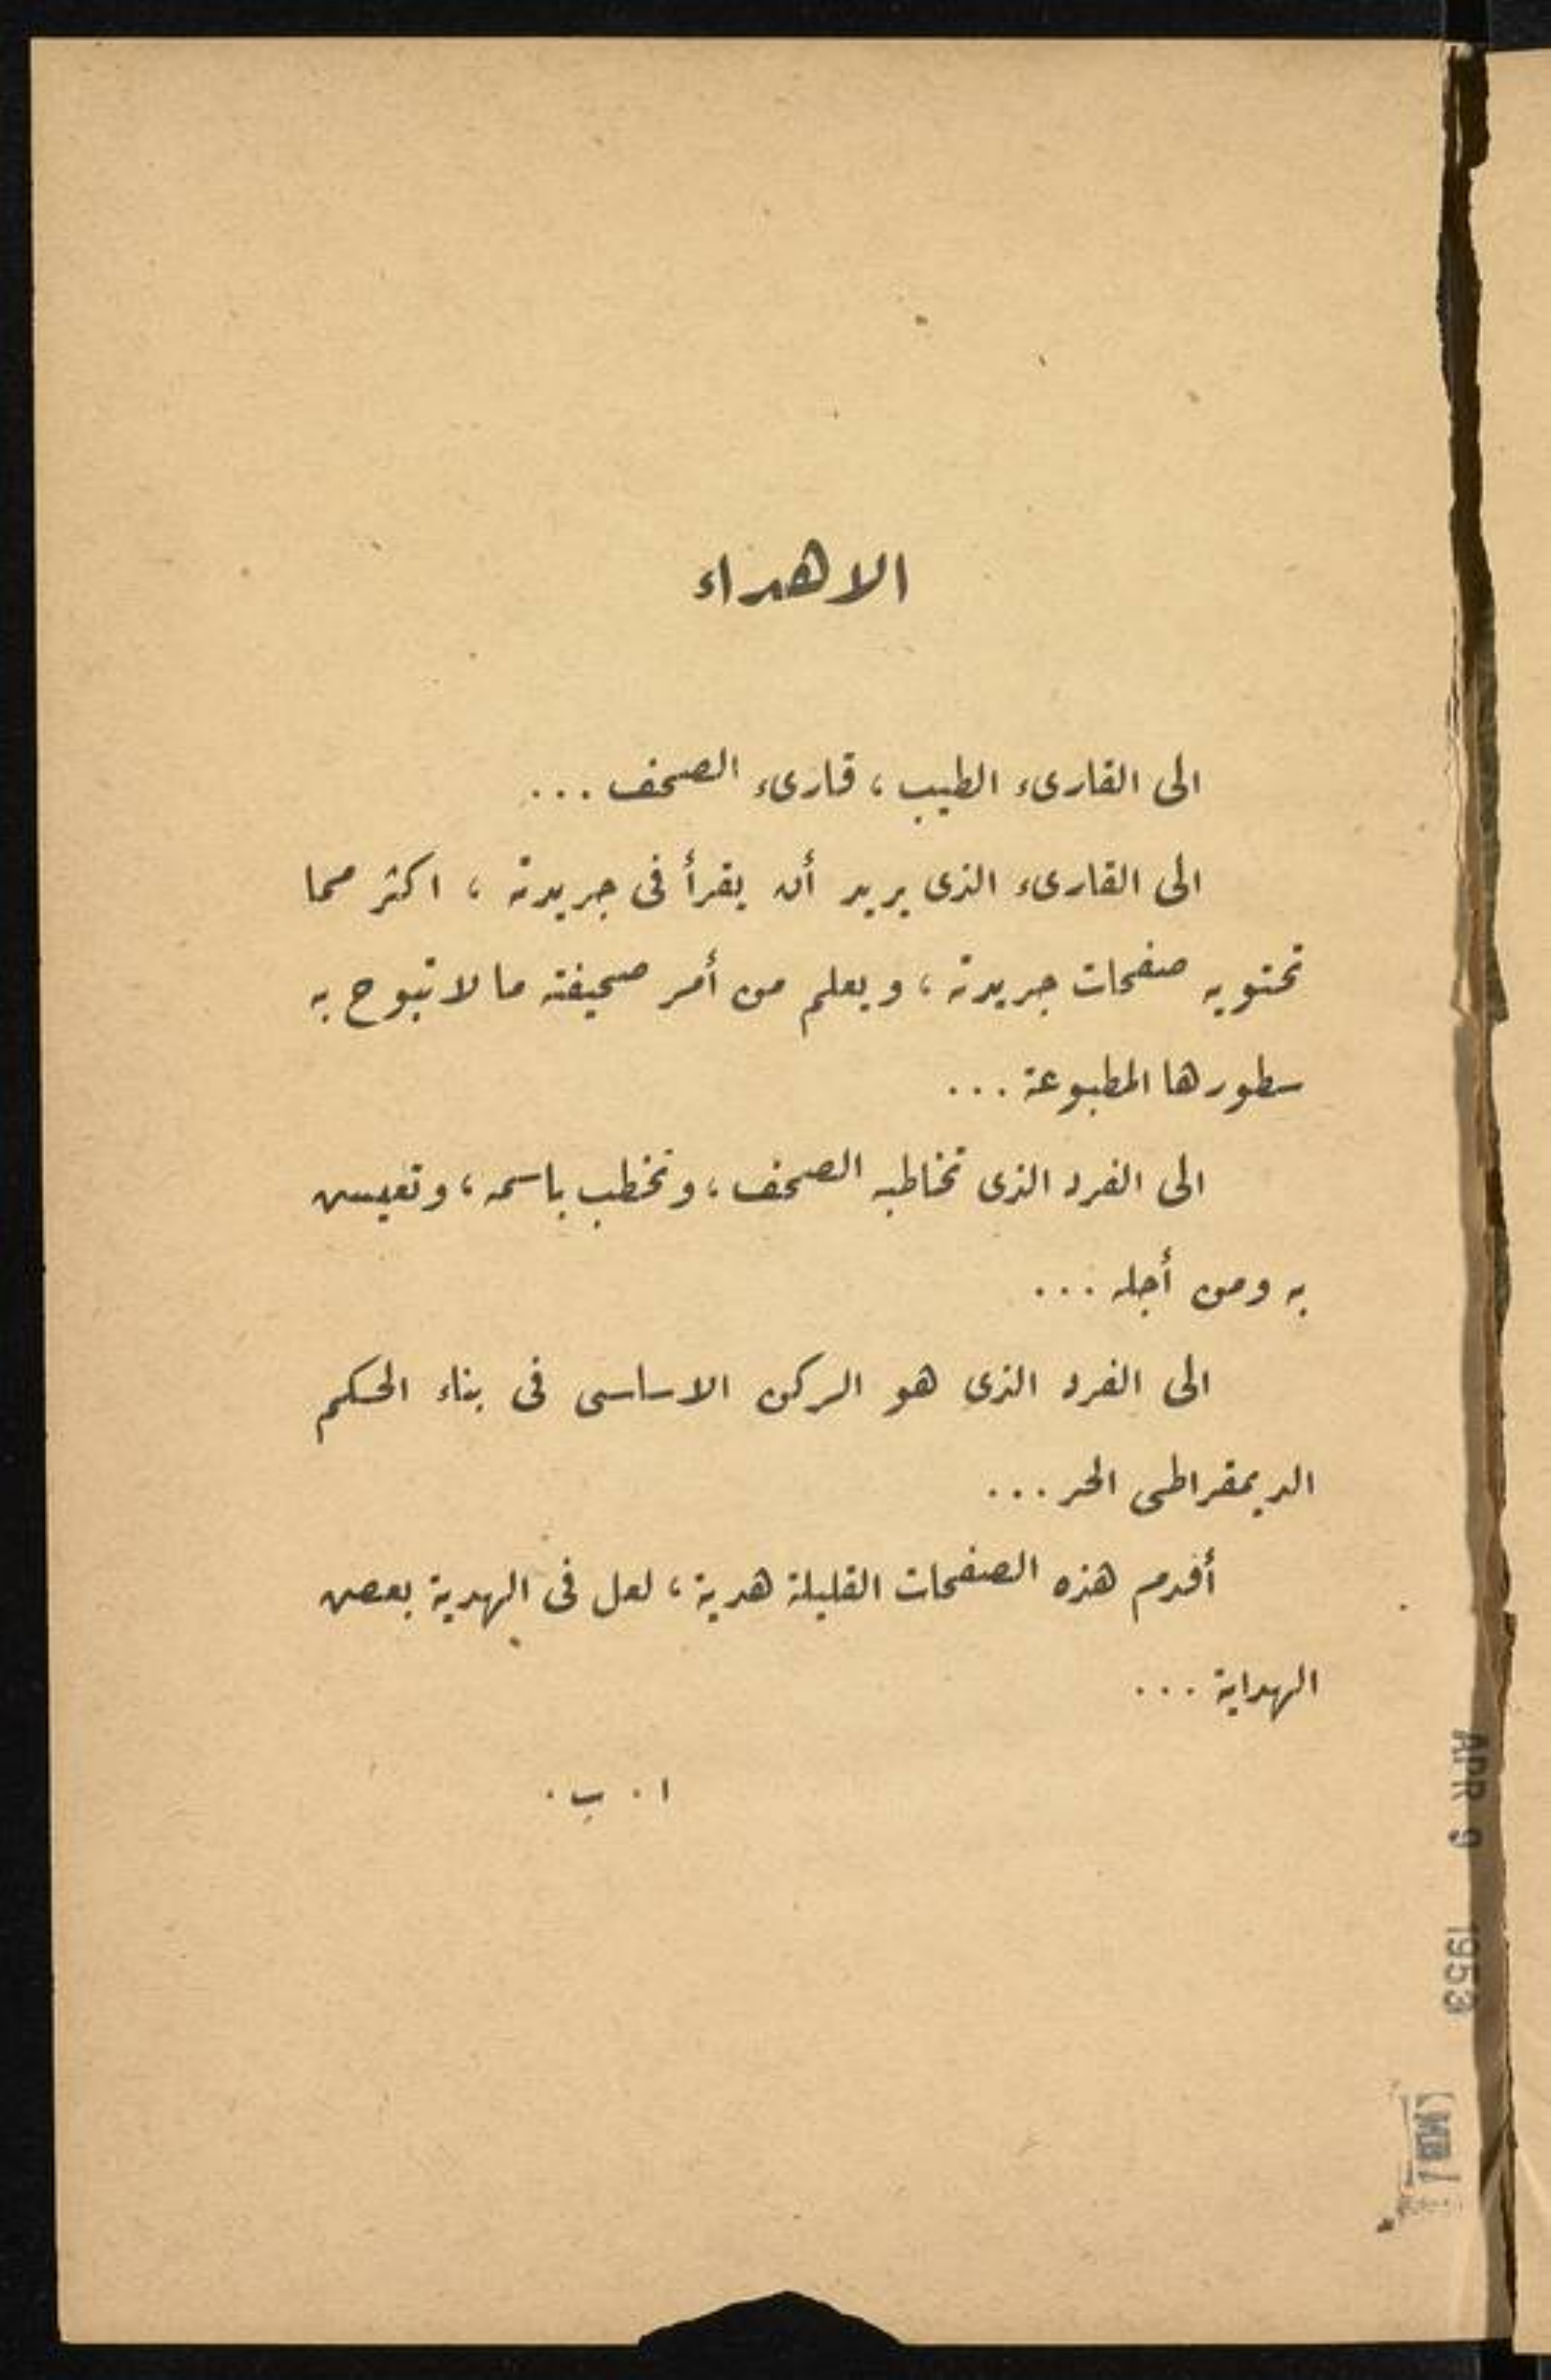 الاهداء
الى القارىء الطيب ، قارىء الصحف ...
الى القارىء الذى يريد أن يقرأ فى جريدته ، اكثر مما
تحتويه صفحات جريدته ، ويعلم من أمر صحيفته ما لا تبوح به
سطورها المطبوعة ...
الى الفرد الذى تخاطبه الصحف ، وتخطب باسمه ، وتعيش
به ومن أجله ...
الى الفرد الذى هو الركن الاساسى فى بناء الحكم
الديمقراطى الحر ...
أقدم هذه الصفحات القليلة هدية ، لعل فى الهدية بعض
الهداية ...
ا . ب .
APR 9 1953